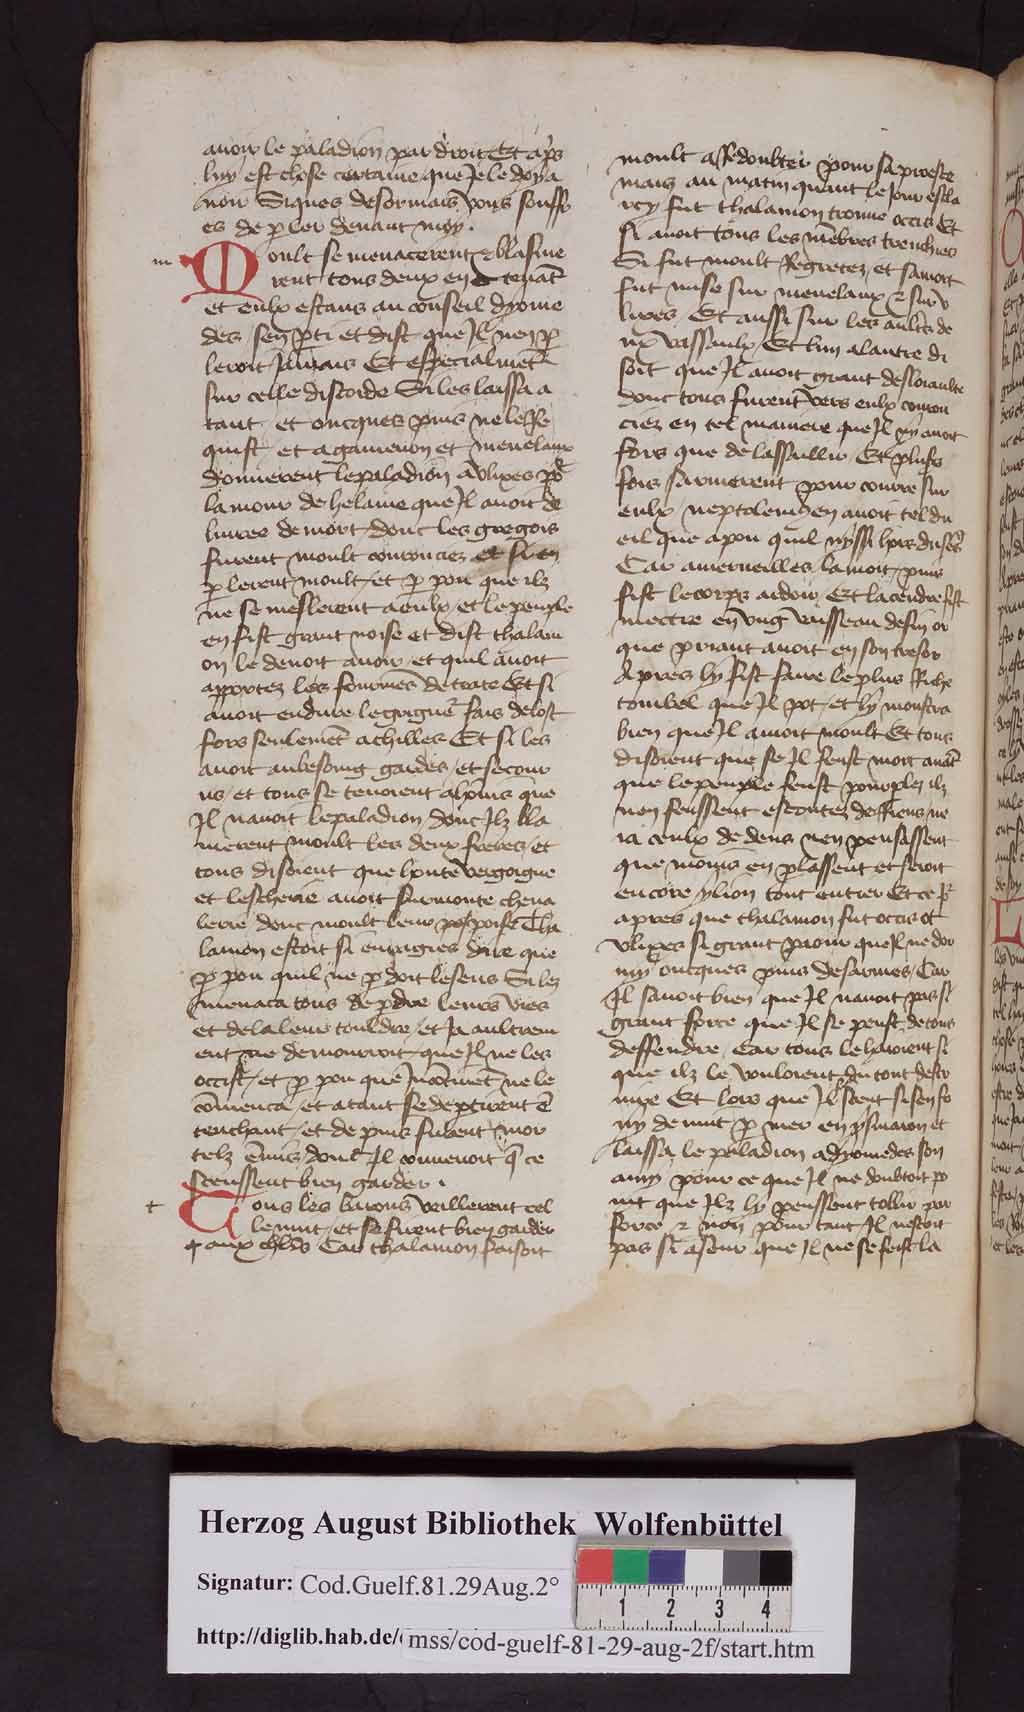 auoir le paladion par droit Et apres
luy est chose certaine que Je le doy a
uoir Siques desormais vous souffr
es de p ler deuant moy.
m
Moult se menacerent & blasme
rent tous deux en tenāt
et eulx estans au conseil dyome
des sen pti et dist que Jl nen p
leroit Jamais Et especialmēt
sur celle discorde Si les laissa a
tant et oncques puis ne le Re
quist et agamenon et menelaux
donnerent le paladion a vlixes po
lamour de helaine que Jl auoit de
liuree de mort donc les gregois
furent moult courouciez et si en
p lerent moult et p pou que ilz
ne se meslerent a eulx et le peuple
en fist grant noise et dist thalam
on le deuoit auoir et quil auoit
apportez les fourmēs de trace Et si
auoit endure le greigneʳ fais de lost
fors seulemēt achilles Et si les
auoit au besoing gardes et secour
us et tous se tenoient a
Jl nauoit le paladion donc Jlz bla
merent moult les deux freres et
tous disoient que honte vergoigne
et lescherie auoit surmonte cheua
lerie donc moult leur poise Tha
lamon estoit si enragies dire que
p pou quil ne p doit le sens Si lez
menaca tous de pdre leurs vies
et de la leur touldre et Ja aultrem
ent ne demourroit que Jl ne les
occist et p pou que ne le
cōmenca et atant se deptirent ē
tenchant et de puis furent mor
telz ēnīs donc Jl conuenoit q̄ ce
sceussent bien garder.
t
Tous les barons veillerent cel
le nuit et se furent bien garder
aux chl̄rs Car thalamon faisoit
moult a Redoubter pour sa proesce
mais au matin quant le Jour escla
rcy fut thalamon trouue occis Et
si auoit tous les mēbres trenchies
Si fut moult Regretez et sa mort
fut mise sur menelaux & sur v
lixes Et aussi sur les aultres de
ux vassaulx Et lun a lautre di
soit que Jl auoit grant desloiaulte
donc tous furent vers eulx courou
ciez en tel maniere que Jl ny auoit
fors que de lassaillir Et plusrs
fois sarmerent pour courre sur
eulx neptolemus en auoit tel du
eil que a pou quil nyssi hors du sēs
Car a merueilles lamoit puis
fist le corps ardoir Et la cendre fist
mectre en vng vaisseau de fin or
que priant auoit en son tresor
Apres ly fist faire le plus Riche
tombel que Jl pot et ly monstra
bien que Jl amoit moult Et tous
disoient que se Jl feust mort auāt
que le peuple feust pourplez ilz
nen feussent escoutez de Riens ne
ia ceulx de dens nen pensassent
que moins en plassent et seroit
encore ylion tout entier Et ce Jr
apres que thalamon fut occis ot
vlixes si grant paour que Jl ne dor
my oncques puis desarmes Car
Jl sauoit bien que Jl nauoit pas si
grant force que Jl se peust de tous
deffendre Car tous le haioient si
que ilz le vouloient du tout destr
uire Et lors que Jl scent si sen fo
uy de nuit p mer en ysmaron et
laissa le palladion a dyomedes son
amy pour ce que Jl ne doubtoit po
int que Jlz ly peussent tollir par
force & non pour tant Jl nestoit
pas si aseur que Jl ne se feist la
Herzog August Bibliothek Wolfenbüttel
Signatur: Cod.Guelf.81.29Aug.2°
1 2 3 4
http://diglib.hab.de/ mss/cod-guelf-81-29-aug-2f/start.htm